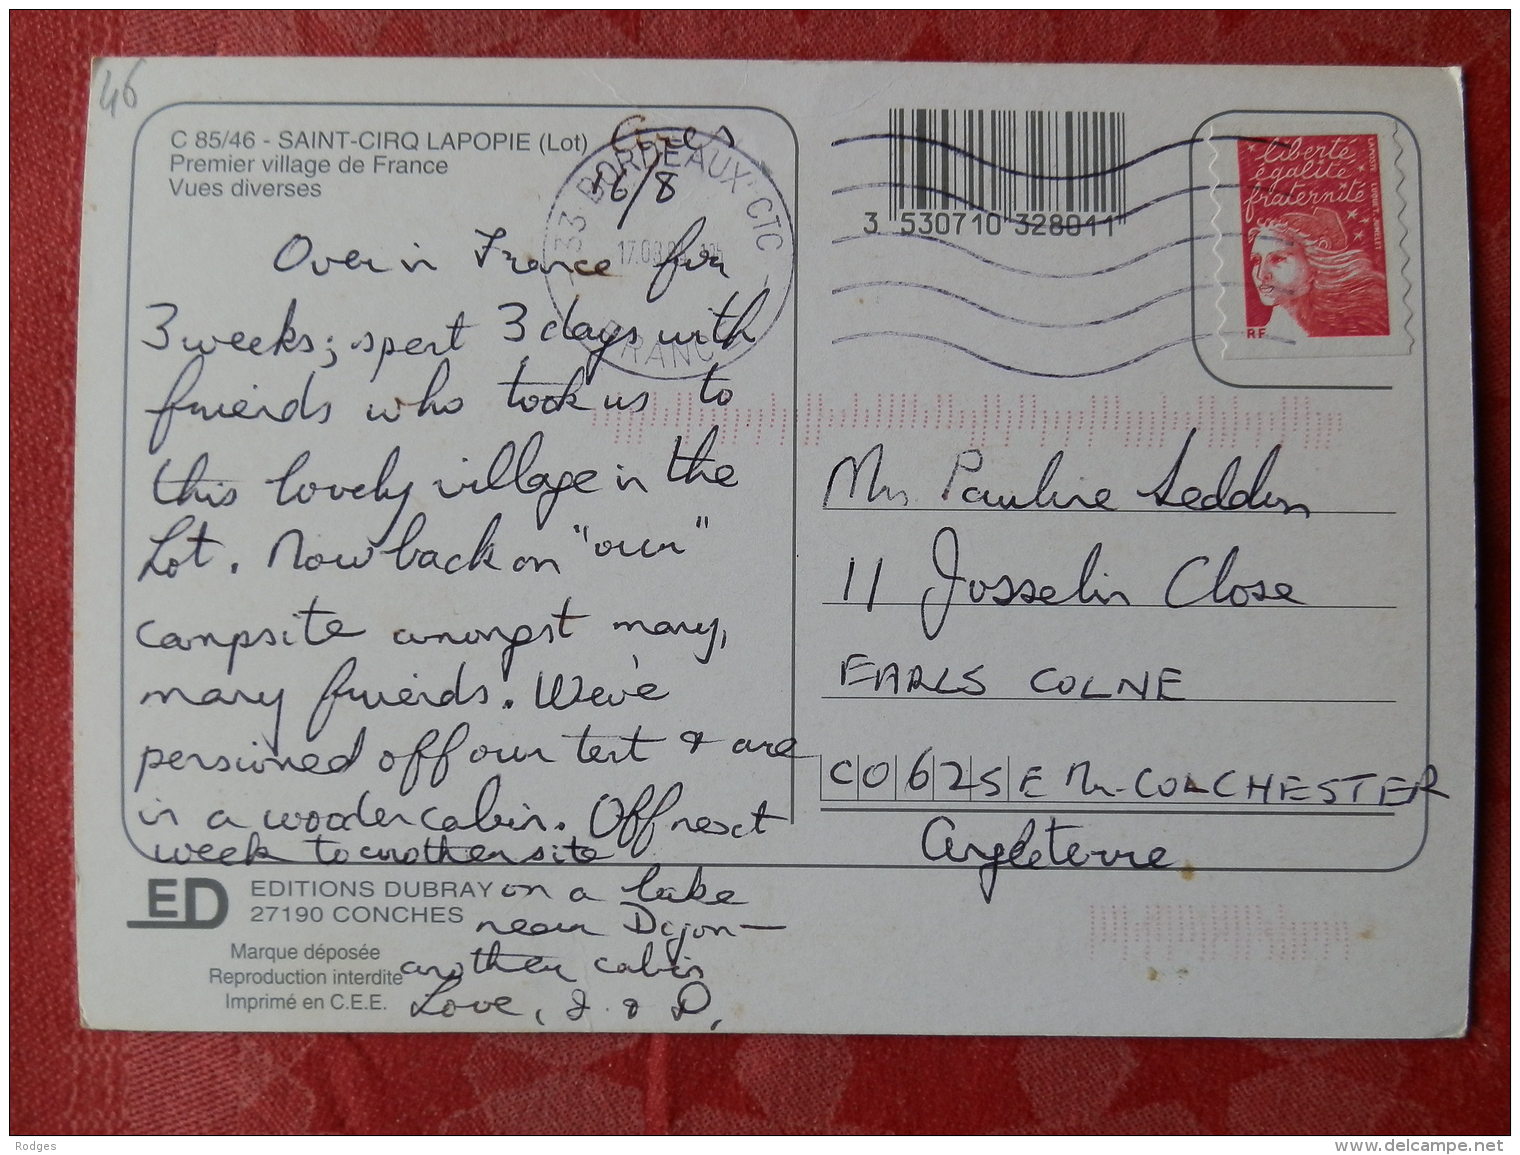 46
C 85/46 - SAINT-CIRQ LAPOPIE (Lot)
Premier village de France
Vues diverses
Ares
16/8
33 BORDEAUX CTC
17.08
FRANCE
Over in France for
3 weeks; spent 3 days with
friends who took us to
this lovely village in the
Lot. Now back on "our"
campsite amongst many,
many friends. We've
pensioned off our tent & are
in a wooden cabin. Off next
week to another site
on a lake
near Dijon—
another cabin
Love, J. & D.
ED
EDITIONS DUBRAY
27190 CONCHES
Marque déposée
Reproduction interdite
Imprimé en C.E.E.
3 530710 328011
liberté
égalité
fraternité
LAPOSTE
RF
Mrs Pauline Seddon
11 Josselin Close
EARLS COLNE
CO6 2SE Nr COLCHESTER
Angleterre
Rodges
www.delcampe.net